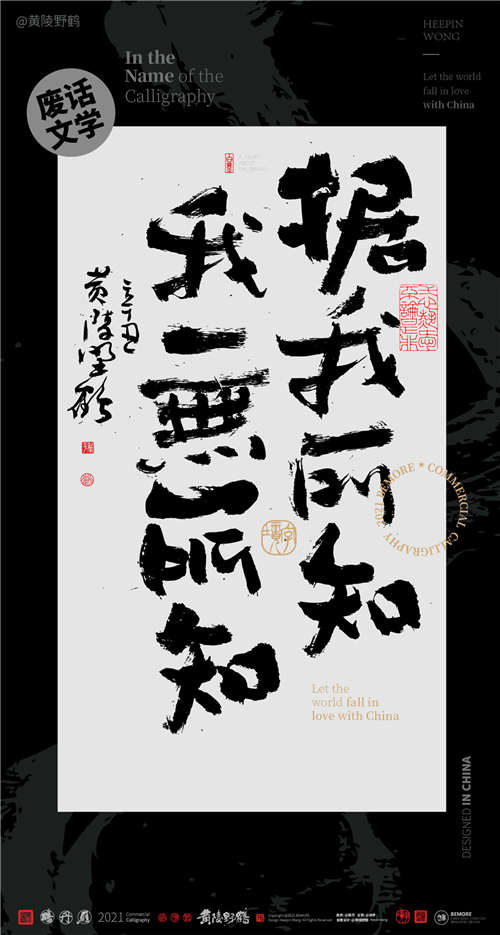 @黄陵野鹤
HEEPIN
WONG
In the
Name of the
Calligraphy
Let the world
fall in love
with China
废话
文学
据我所知
我一無所知
黄陵野鹤
2021 BEMORE * COMMERCIAL CALLIGRAPHY
Let the
world fall in
love with China
DESIGNED IN CHINA
2021
Commercial
Calligraphy
黄陵野鹤
BEMORE